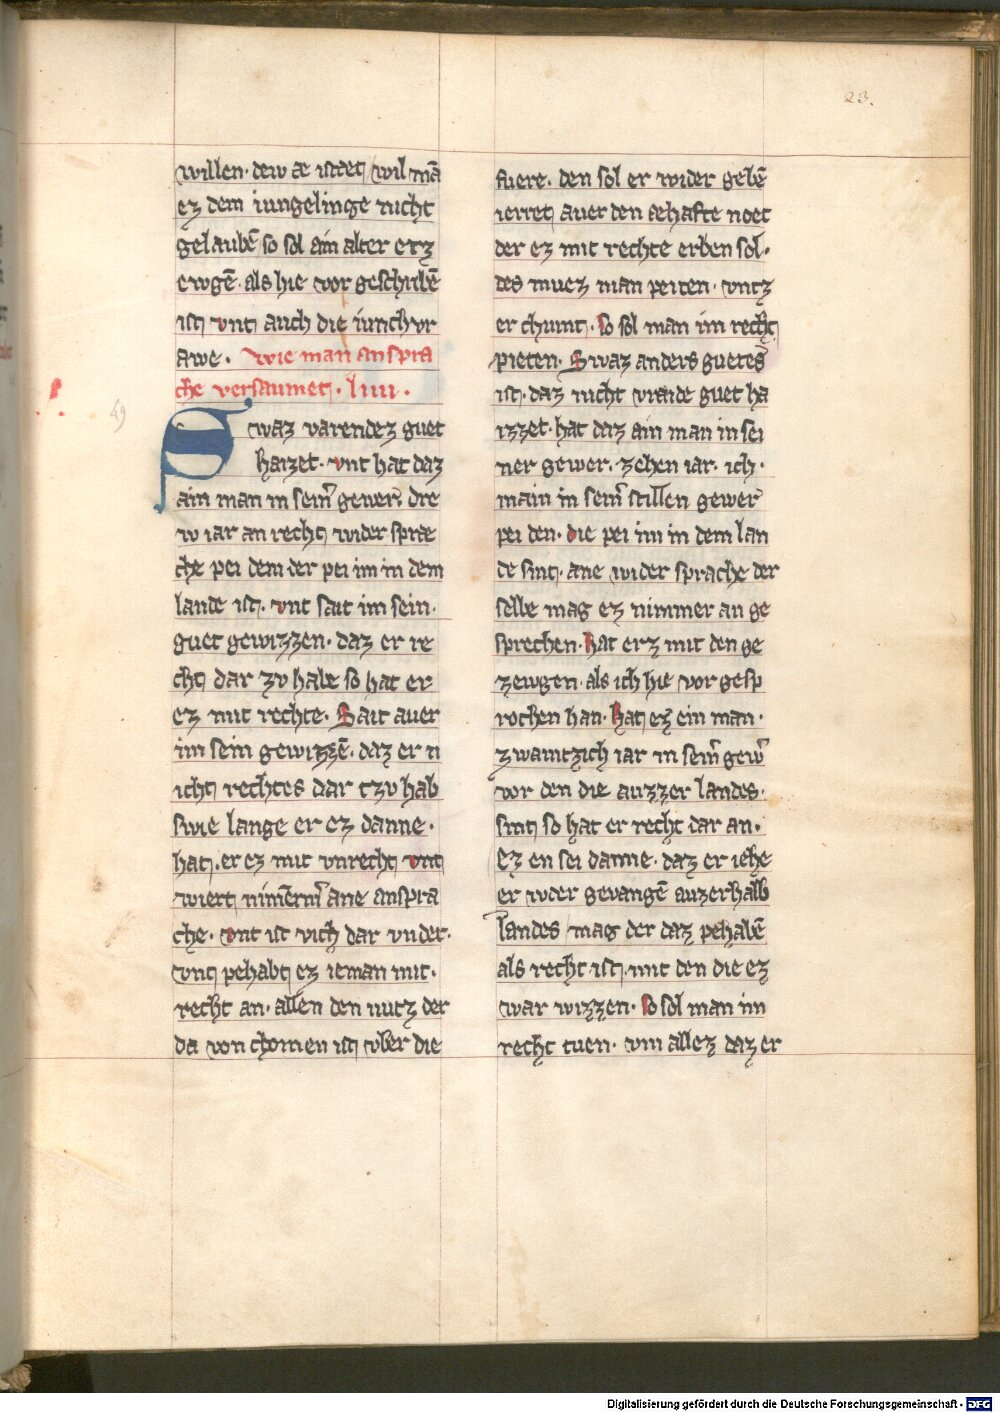 23.
willen· dew æ istet wil mā
ez dem iungelinge nicht
gelaubē so sol ain alter erz
ewgē· als hie vor geschribē
ist vnt auch die iunchvr
awe· wie man anspra
che versaumet· liiii·
49
Swaz varendez guet
haizet· vnt hat daz
ain man in seim̄ gewer· dre
w iar an recht wider spræ
che pei dem der pei im in dem
lande ist· vnt sait im sein·
guet gewizzen· daz er re
cht dar zv habe so hat er
ez mit rechte· Sait auer
im sein gewizzē· daz er n
icht rechtes dar tzv hab
swie lange er ez danne·
hat· er ez mit vnrecht vnt
wiert nimerm̄ ane anspra
che· vnt ist vich dar vnder·
vnt pehabt ez ieman mit·
recht an· allen den nutz der
da von chomen ist vber die
fuere· den sol er wider gebē
ierret auer den æhafte noet
der ez mit rechte erben sol·
des muez man peiten· vntz
er chumt· So sol man im recht
pieten· Swaz anders guetes
ist· daz nicht vrænde guet ha
izzet· hat daz ain man in sei
ner gewer· zehen iar· ich·
main in seim̄ stillen gewer
pei den· die pei im in dem lan
de sint· ane wider sprache der
selbe mag ez nimmer an ge
sprechen· hat erz mit den ge
zewgen· als ich hie vor gesp
rochen han· hat ez ein man·
zwaintzich iar in seim̄ gew̄
vor den die auzzer landes·
sint so hat er recht dar an·
Ez en sei danne· daz er iehe
er wder gevangē auzerhalb
landes mag der daz pehabē
als recht ist· mit den die ez
war wizzen· So sol man im
recht tuen· vm allez daz er
Digitalisierung gefördert durch die Deutsche Forschungsgemeinschaft - DFG